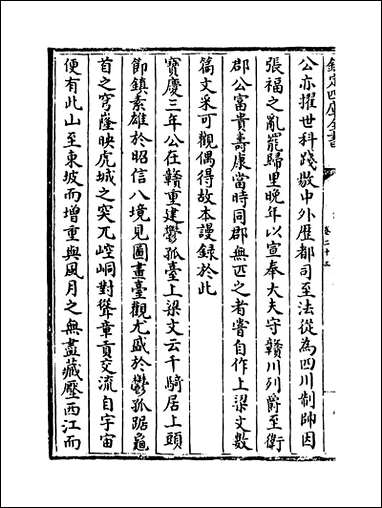 欽定四庫全書
卷二十五
公亦擢世科踐敭中外歴都司至法從為四川制帥因
張福之亂罷歸里晚年以宣奉大夫守贛川列爵至衛
郡公富貴壽康當時同郡無匹之者嘗自作上梁文數
篇文采可觀偶得故本謾録於此
寳慶三年公在贛重建鬱孤臺上梁文云千騎居上頭
節鎮素雄於昭信八境見圖畫臺觀尤盛於鬱孤踞龜
首之穹窿映虎城之突兀崆峒對聳章貢交流自宇宙
便有此山至東坡而増重與風月之無盡藏壓西江而